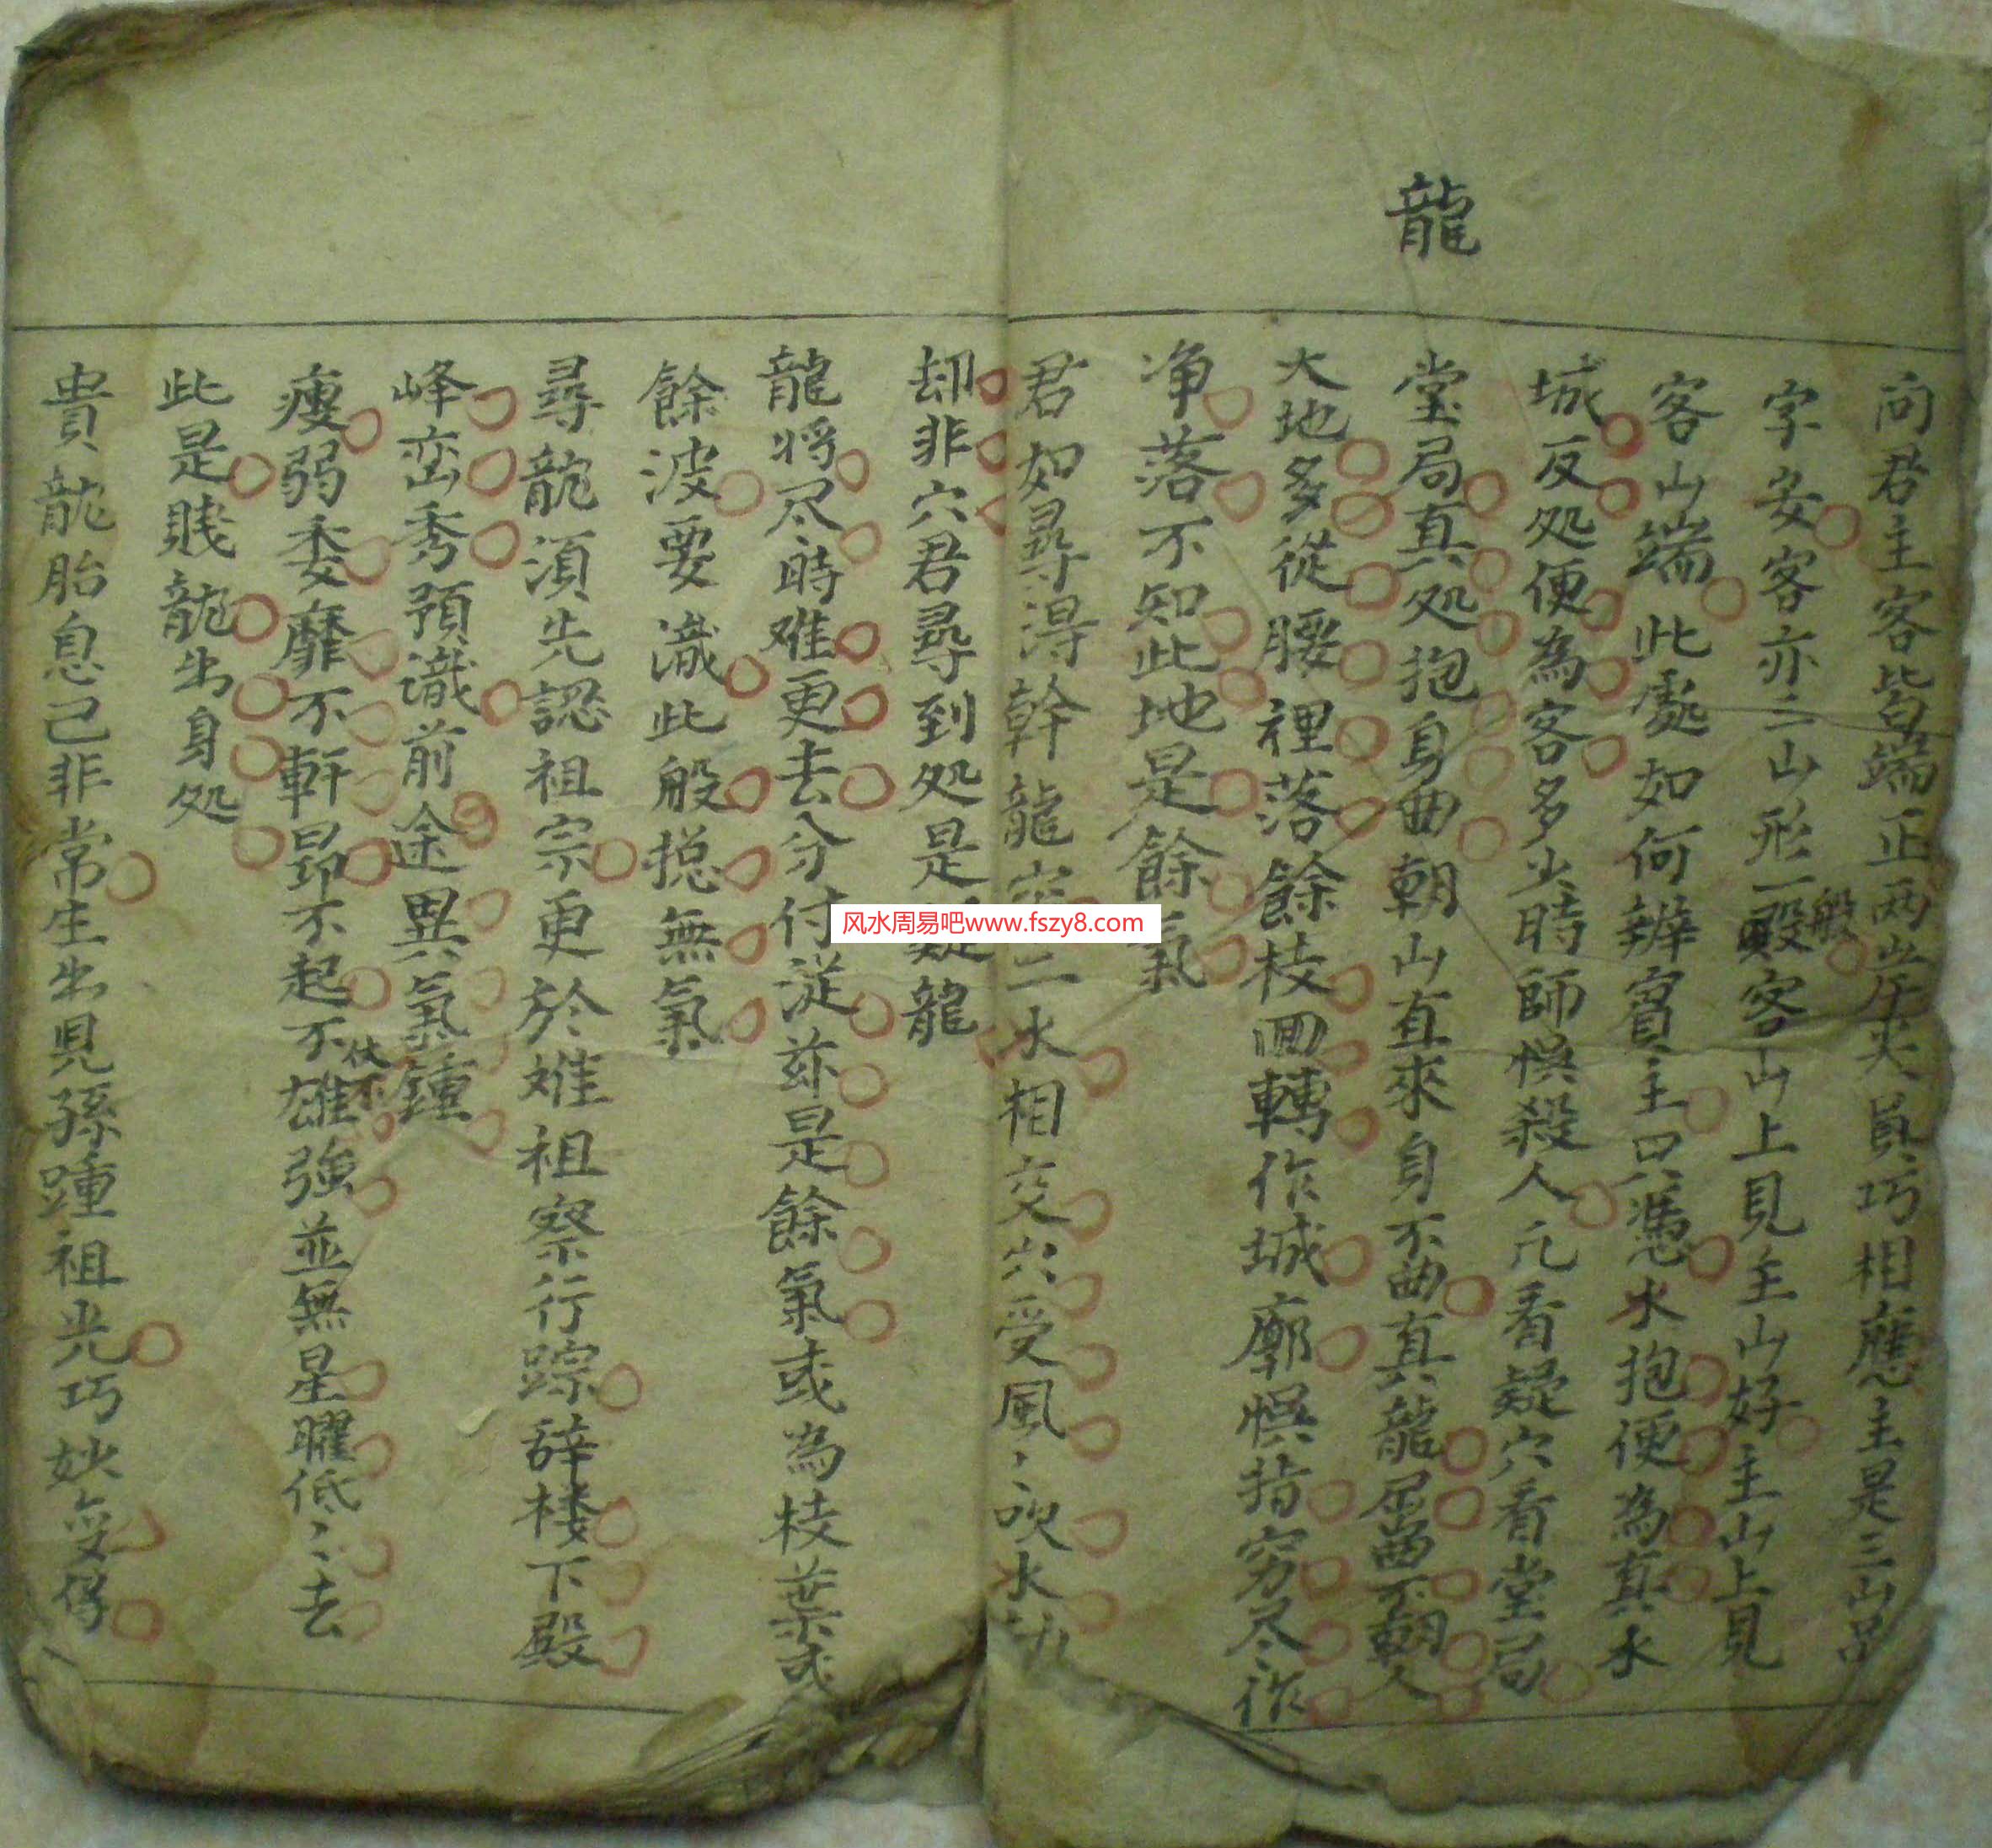 龍
向君主客皆端正两岸夹員巧相應主是三山品
字安客亦三山形一般客山上見主山好主山上見
客山端此處如何辨賓主只憑水抱便為真水
城反処便為客多少時師悮殺人凢看疑穴看堂局
堂局真処抱身曲朝山直來身不曲真龍屈曲不朝人
大地多從腰裡落餘枝回轉作城廓悮指穷尽作
净落不知此地是餘氣
君如尋得幹龍二水相交穴受風〻吹水刼
却非穴君尋到処是疑龍
龍将尽時难更去分付從兹是餘氣或為枝葉或
餘波要識此般揔無氣
尋龍湏先認祖宗更於难祖察行踪辞楼下殿
峰峦秀預識前途異氣鍾
瘦弱委靡不軒昻不起不伏不雄強並無星曜低〻去
此是賤龍出身処
貴龍胎息已非常生出児孫踵祖光巧妙
风水周易吧www.fszy8.com